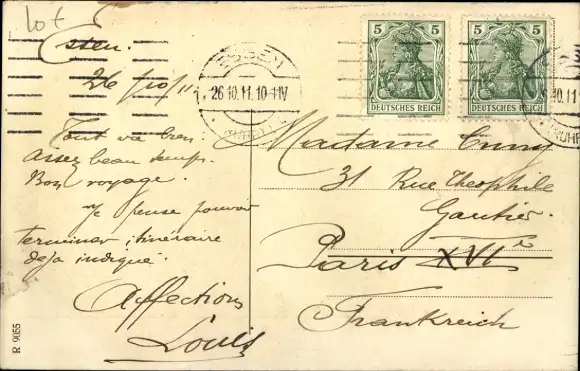 lot
Essen.
26/10/11.
Tout va bien
assez beau temps.
Bon voyage.
Je pense pouvoir
terminer itinéraire
deja indiqué.
Affection
Louis
R 9055
ESSEN
26.10.11.10-11V
(RUHR)
5 5
DEUTSCHES REICH
5 5
DEUTSCHES REICH
.10.11
(RUHR)
Madame Cuny
31 Rue Theophile
Gautier.
Paris XVIe
Frankreich